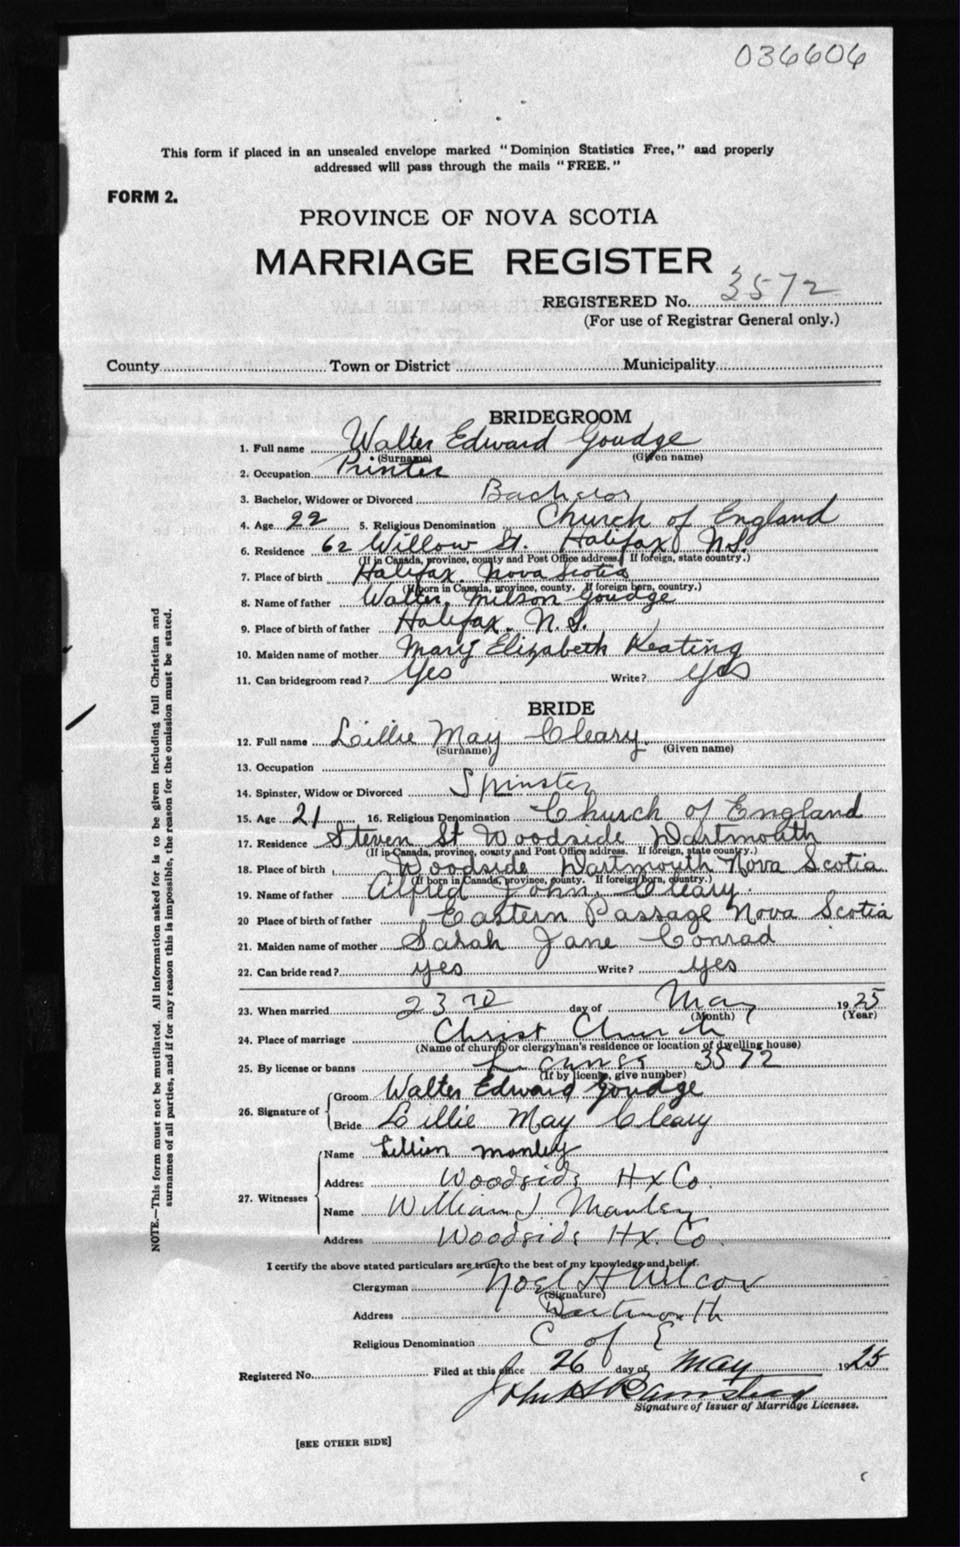 036606
This form if placed in an unsealed envelope marked "Dominion Statistics Free," and properly
addressed will pass through the mails "FREE."
FORM 2.
PROVINCE OF NOVA SCOTIA
MARRIAGE REGISTER
REGISTERED No. 3572
(For use of Registrar General only.)
County Town or District Municipality
BRIDEGROOM
1. Full name Walter Edward Goudge
(Surname) (Given name)
2. Occupation Printer
3. Bachelor, Widower or Divorced Bachelor
4. Age 22 5. Religious Denomination Church of England
6. Residence 62 Willow St. Halifax N.S.
(If in Canada, province, county and Post Office address. If foreign, state country.)
7. Place of birth Halifax. Nova Scotia
(If born in Canada, province, county. If foreign born, country.)
8. Name of father Walter Milson Goudge
9. Place of birth of father Halifax. N.S.
10. Maiden name of mother Mary Elizabeth Keating
11. Can bridegroom read? Yes Write? Yes
BRIDE
12. Full name Lillie May Cleary.
(Surname) (Given name)
13. Occupation
14. Spinster, Widow or Divorced Spinster
15. Age 21 16. Religious Denomination Church of England
17. Residence Steven St Woodside Dartmouth
(If in Canada, province, county and Post Office address. If foreign, state country.)
18. Place of birth Woodside Dartmouth Nova Scotia
(If born in Canada, province, county. If foreign born, country.)
19. Name of father Alfred John Cleary.
20 Place of birth of father Eastern Passage Nova Scotia
21. Maiden name of mother Sarah Jane Conrad
22. Can bride read? yes Write? yes
23. When married 23rd day of May 1925
(Month) (Year)
24. Place of marriage Christ Church
(Name of church or clergyman's residence or location of dwelling house)
25. By license or banns License 3572
(If by license, give number)
26. Signature of
Groom Walter Edward Goudge
Bride Lillie May Cleary
27. Witnesses
Name Lillian Manley
Address Woodside Hx Co.
Name William J. Manley
Address Woodside Hx. Co.
I certify the above stated particulars are true to the best of my knowledge and belief.
Clergyman Noel H Wilcox
(Signature)
Address Dartmouth
Religious Denomination C of E
Registered No. Filed at this office 26 day of May 1925
John H
Signature of Issuer of Marriage Licenses.
[SEE OTHER SIDE]
NOTE.—This form must not be mutilated. All information asked for is to be given including full Christian and
surnames of all parties, and if for any reason this is impossible, the reason for the omission must be stated.